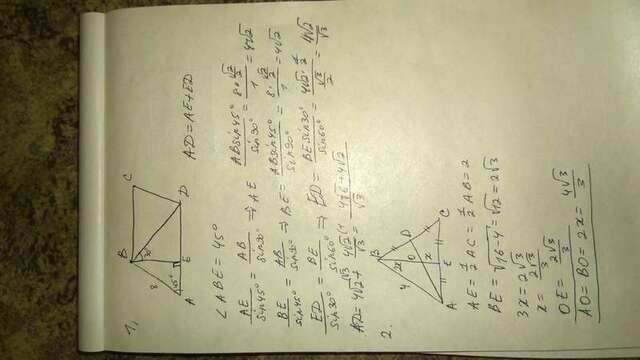 1,
B
C
8
30°
45°
A
E
D
AD=AE+ED
∠ABE=45°
AE/sin45° = AB/sin90° ⇒ AE = ABsin45°/sin90° = 8·√2/2/1 = 4√2
BE/sin45° = AB/sin90° ⇒ BE = ABsin45°/sin90° = 8·√2/2/1 = 4√2
ED/sin30° = BE/sin60° ⇒ ED = BEsin30°/sin60° = 4√2·1/2/√3/2 = 4√2/√3
AD=4√2+ 4√2/√3 = 4√6+4√2/√3
2.
B
4
2x
D
O
x
A
E
C
AE=1/2 AC=1/2 AB=2
BE=√16-4=√12=2√3
3x=2√3
x=2√3/3
OE=2√3/3
AO=BO=2x=4√3/3